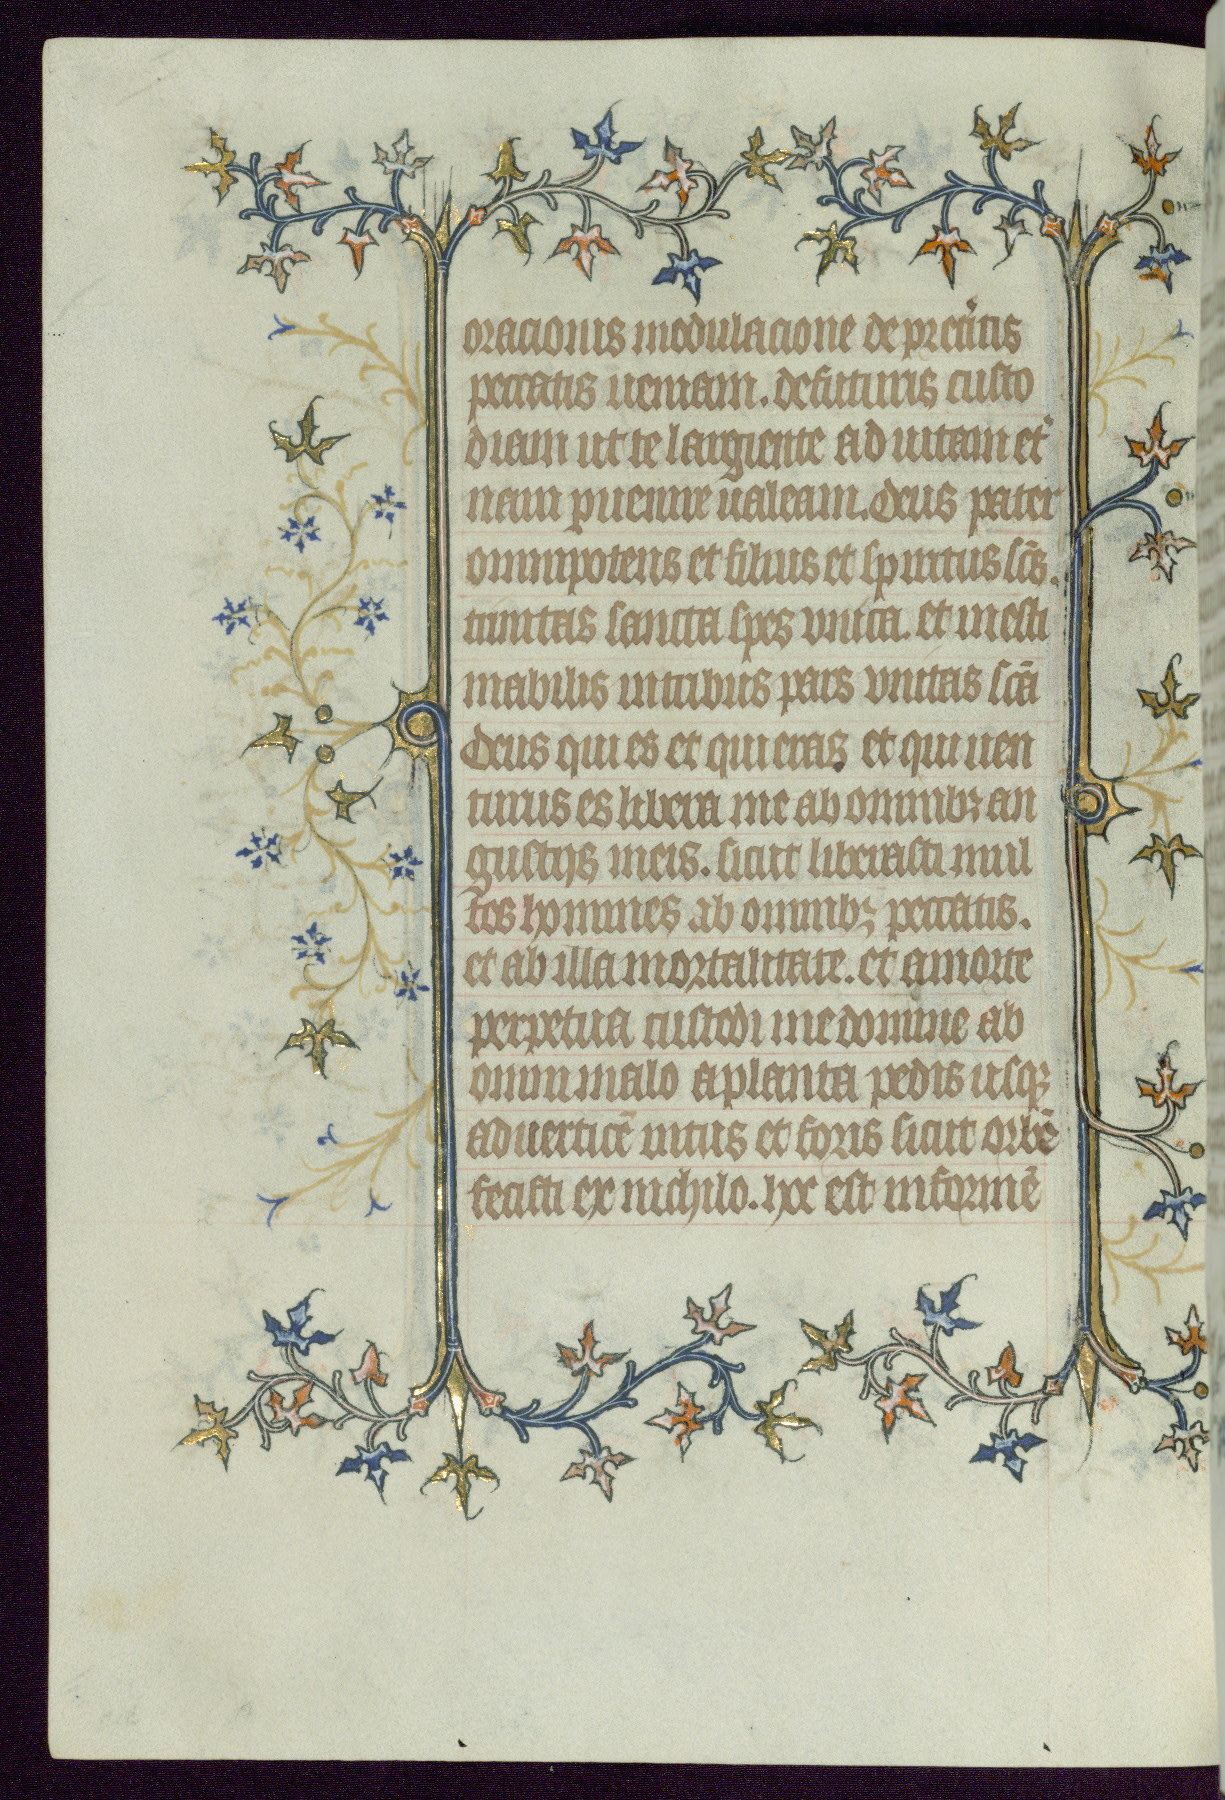 oracionis modulacione de pret̾itis
peccatis ueniam. de futuris custo
diam ut te largiente ad uitam et̾
nam puenire ualeam. Deus pater
omnipotens et filius et spiritus sc̄s.
trinitas sancta spes vnica. et inesti
mabilis intribus pars vnitas sc̄a
Deus qui es et qui eras et qui uen
turus es libera me ab omnibꝫ an
gustijs meis. sicut liberasti mul
tos homines ab omnibꝫ peccatis.
et ab illa mortalitate. et a morte
perpetua custodi me domine ab
omni malo a planta pedis usqꝫ
ad uerticē intus et foris sicut orbē
fecisti ex nichilo. hoc est informē